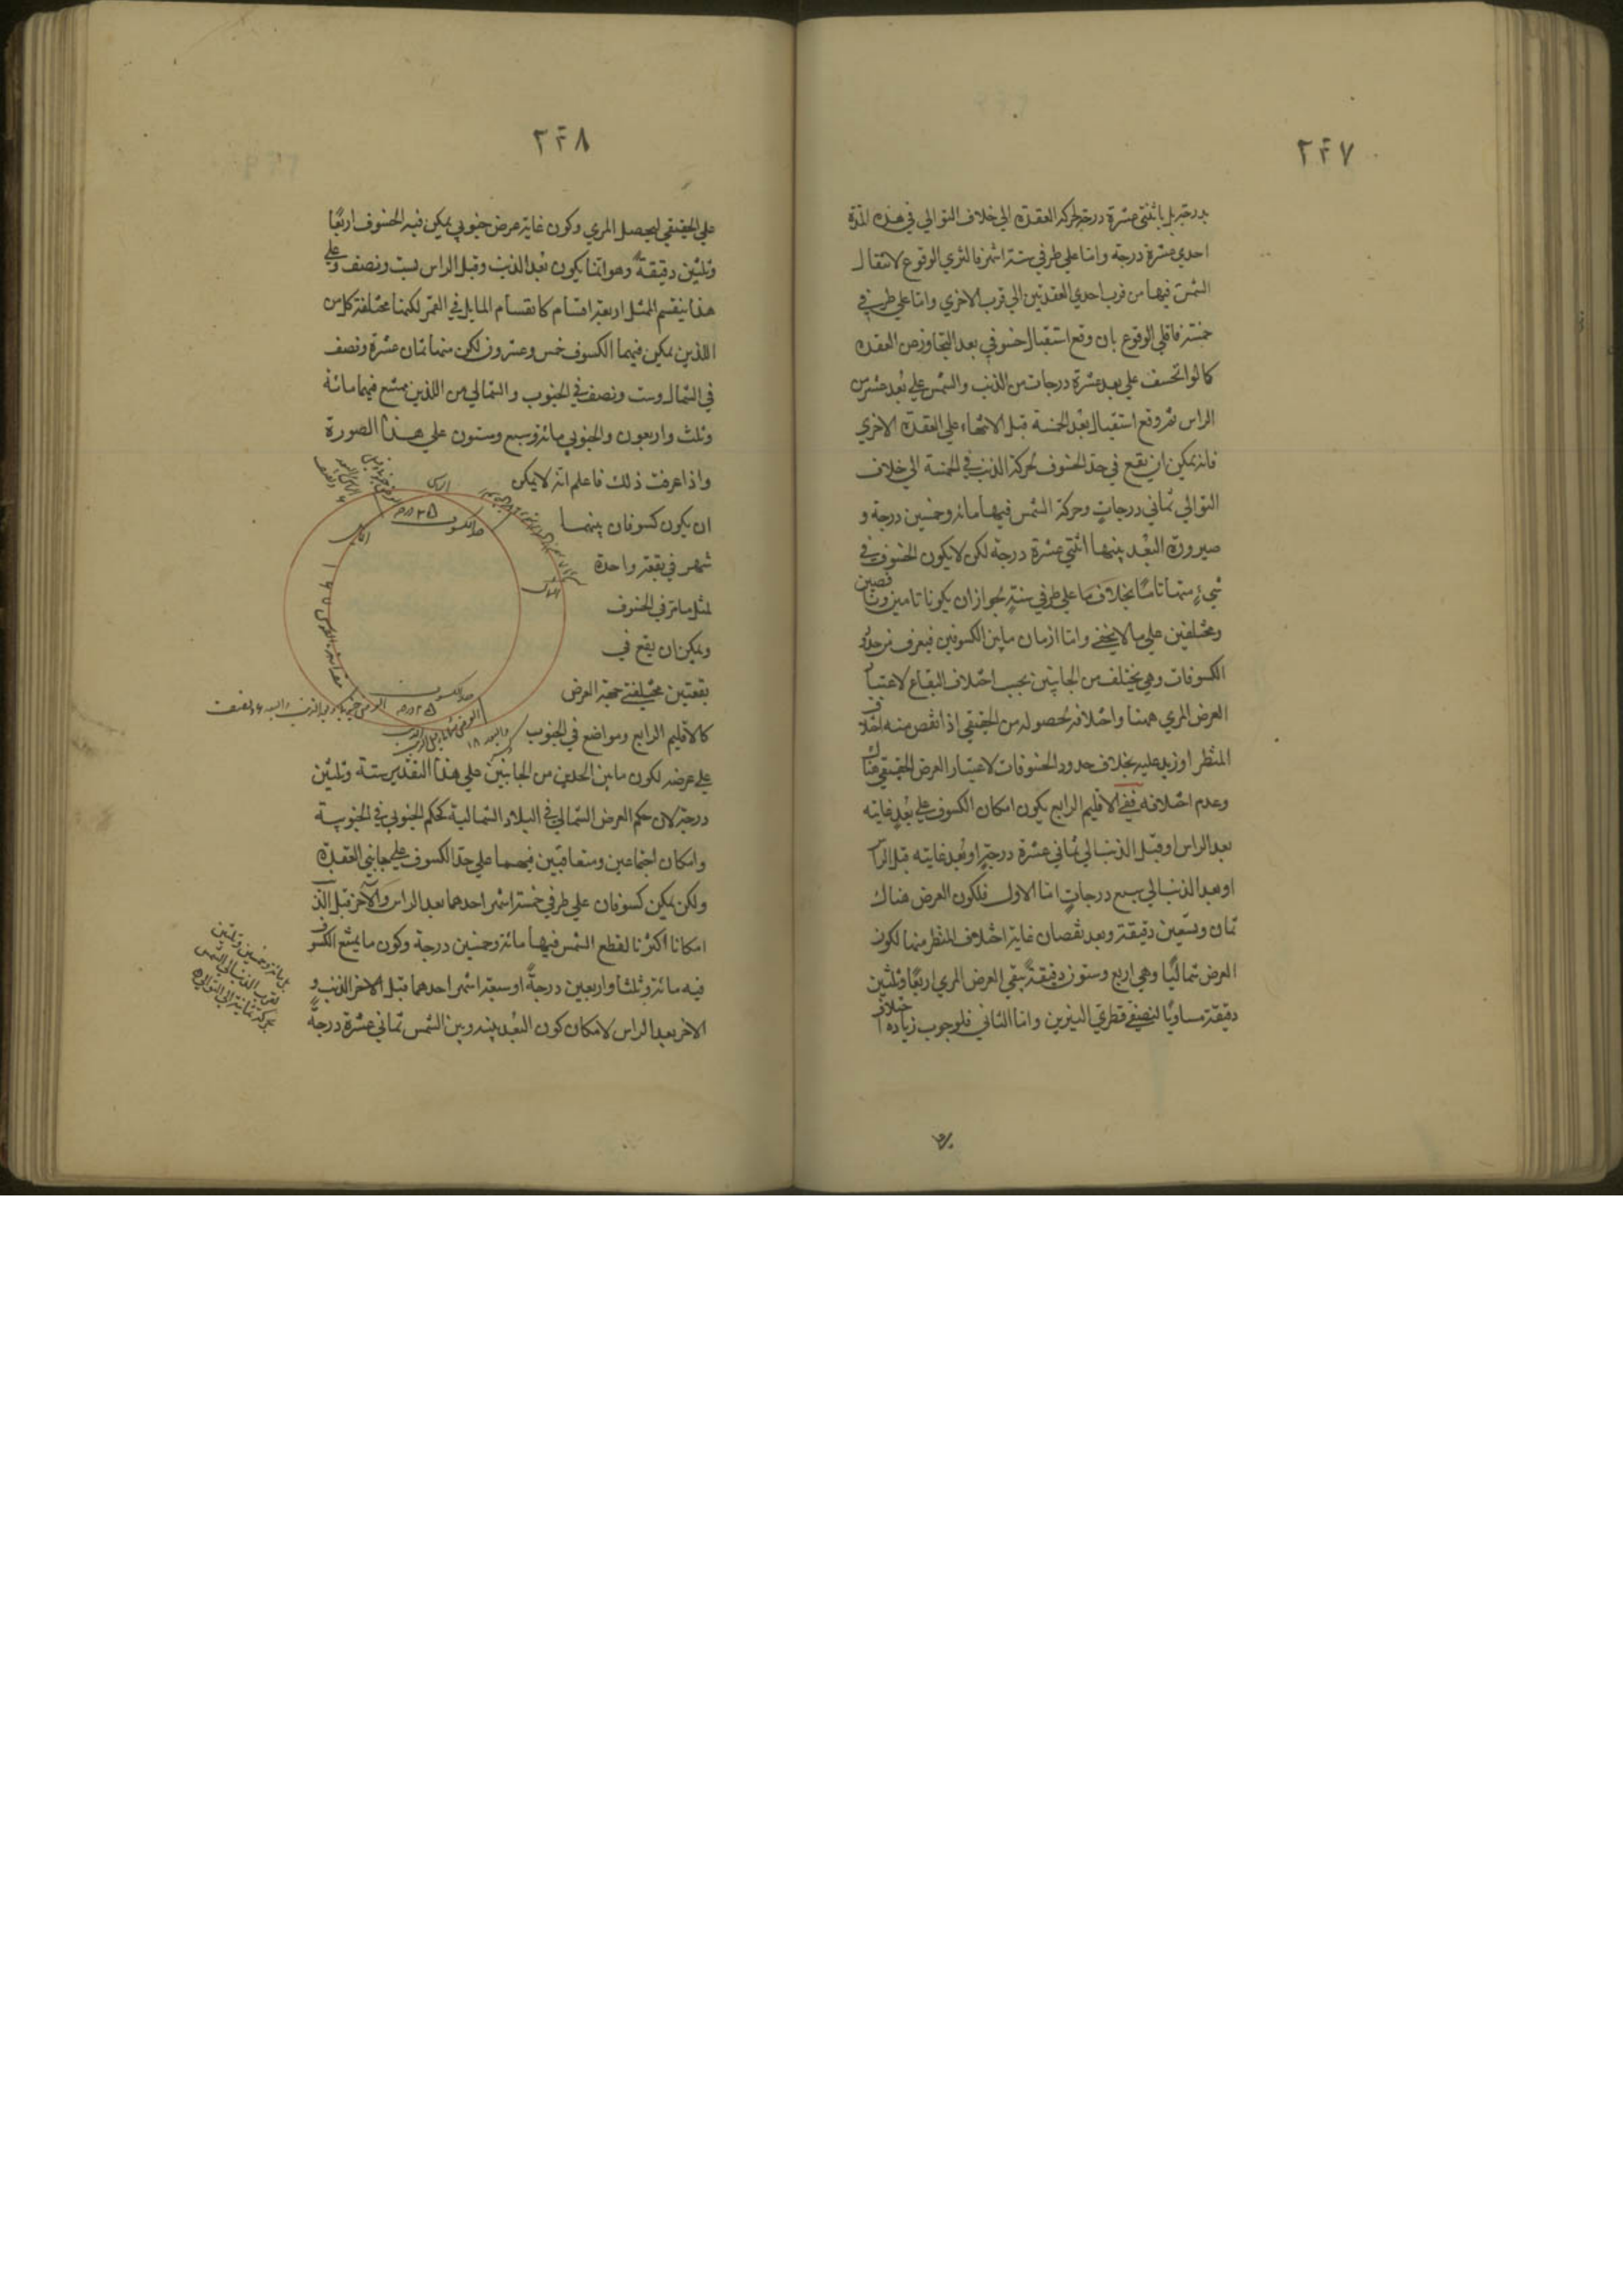 ٢٤٧
بدرجة بل باثنتي عشرة درجة لحركة العقدة الي خلاف التوالي في هذه المدة
احدي عشرة درجة واما علي طرفي ستة اشهر فاكثري الوقوع لانتقال
الشمس فيها من قرب احدي العقدتين الي قرب الاخري واما علي طرفي
خمسة فاقلي الوقوع بان وقع استقبال خسوفي بعد التجاوز من العقدة
كما لو انخسف علي بعد عشرة درجات من الذنب والشمس علي بُعد عشر من
الراس ثم وقع استقبال بعد الخمسة قبل الانتهاء علي العقدة الاخري
فانه يمكن ان يقع في حد الخسوف لحركة الذنب في الخمسة الي خلاف
التوالي ثماني درجاتٍ وحركة الشمس فيها مائة وخمسين درجة و
صيرورة البُعد بينهما اثنتي عشرة درجة لكن لا يكون الخسوف في
شيءٍ منهما تامًا بخلاف ما علي طرفي ستةٍ لجواز ان يكونا تامين وناقصين
ومختلفين علي ما لا يخفي واما ازمان ما بين الكسوفين فيعرف من حدود
الكسوفات وهي يختلف من الجانبين بحسب اختلاف البقاع لاعتبار
العرض المري ههنا واختلافه لحصوله من الحقيقي اذا نقص منه اختلاف
المنظر او زيد عليه بخلاف حدود الخسوفات لاعتبار العرض الحقيقي هناك
وعدم اختلافه ففي الاقليم الرابع يكون امكان الكسوف علي بُعدٍ غايته
بعد الراس او قبل الذنب الي ثماني عشرة درجةٍ او بُعد غايته قبل الراس
او بعد الذنب الي سبع درجاتٍ اما الاول فلكون العرض هناك
ثمان وتسعين دقيقة وبعد نقصان غاية اختلاف المنظر منها لكون
العرض شماليًا وهي اربع وستون دقيقةً يبقي العرض المري اربعًا وثلثين
دقيقة مساويًا لنصفي قطري النيرين واما الثاني فلوجوب زيادة اختلاف
٢٤٨
علي الحقيقي ليحصل المري وكون غاية عرض جنوبي يمكن فيه الخسوف اربعًا
وثلثين دقيقةً وهو انما يكون بُعد الذنب وقبل الراس لست ونصف وعلي
هذا ينقسم الممثل اربعة اقسام كانقسام المايل في القمر لكنها مختلفة كل من
اللذين يمكن فيهما الكسوف خمس وعشرون لكن منها ثمان عشرة ونصف
في الشمال وست ونصف في الجنوب والشمالي من اللذين يمتنع فيهما مائة
وثلث واربعون والجنوبي مائة وسبع وستون علي هذه الصورة
واذا عرفت ذلك فاعلم انه لا يمكن
ان يكون كسوفان بينهما
شهر في بقعة واحدة
لمثل ما مر في الخسوف
ويمكن ان يقع في
بقعتين مختلفتي جهة العرض
كالاقليم الرابع ومواضع في الجنوب
علي عرضه لكون ما بين الحدين من الجانبين علي هذا التقدير ستة وثلثين
درجة لان حكم العرض الشمالي في البلاد الشمالية كحكم الجنوبي في الجنوبية
وامكان اجتماعين ومتعاقبين فيهما علي حد الكسوف علي جانبي العقدة
ولكن يمكن كسوفان علي طرفي خمسة اشهر احدهما بعد الراس والآخر قبل الذنب
امكانا اكثريا لقطع الشمس فيها مائة وخمسين درجة وكون ما يمتنع الكسوف
فيه مائة وثلثا واربعين درجةً او سبعة اشهر احدهما قبل الاخر الذنب و
الاخر بعد الراس لامكان كون البُعد بينه وبين الشمس ثماني عشرة درجةً
الراس
حد الكسوف
٢٥ درجة
حد الكسوف
٢٥ درجة
١٦٧